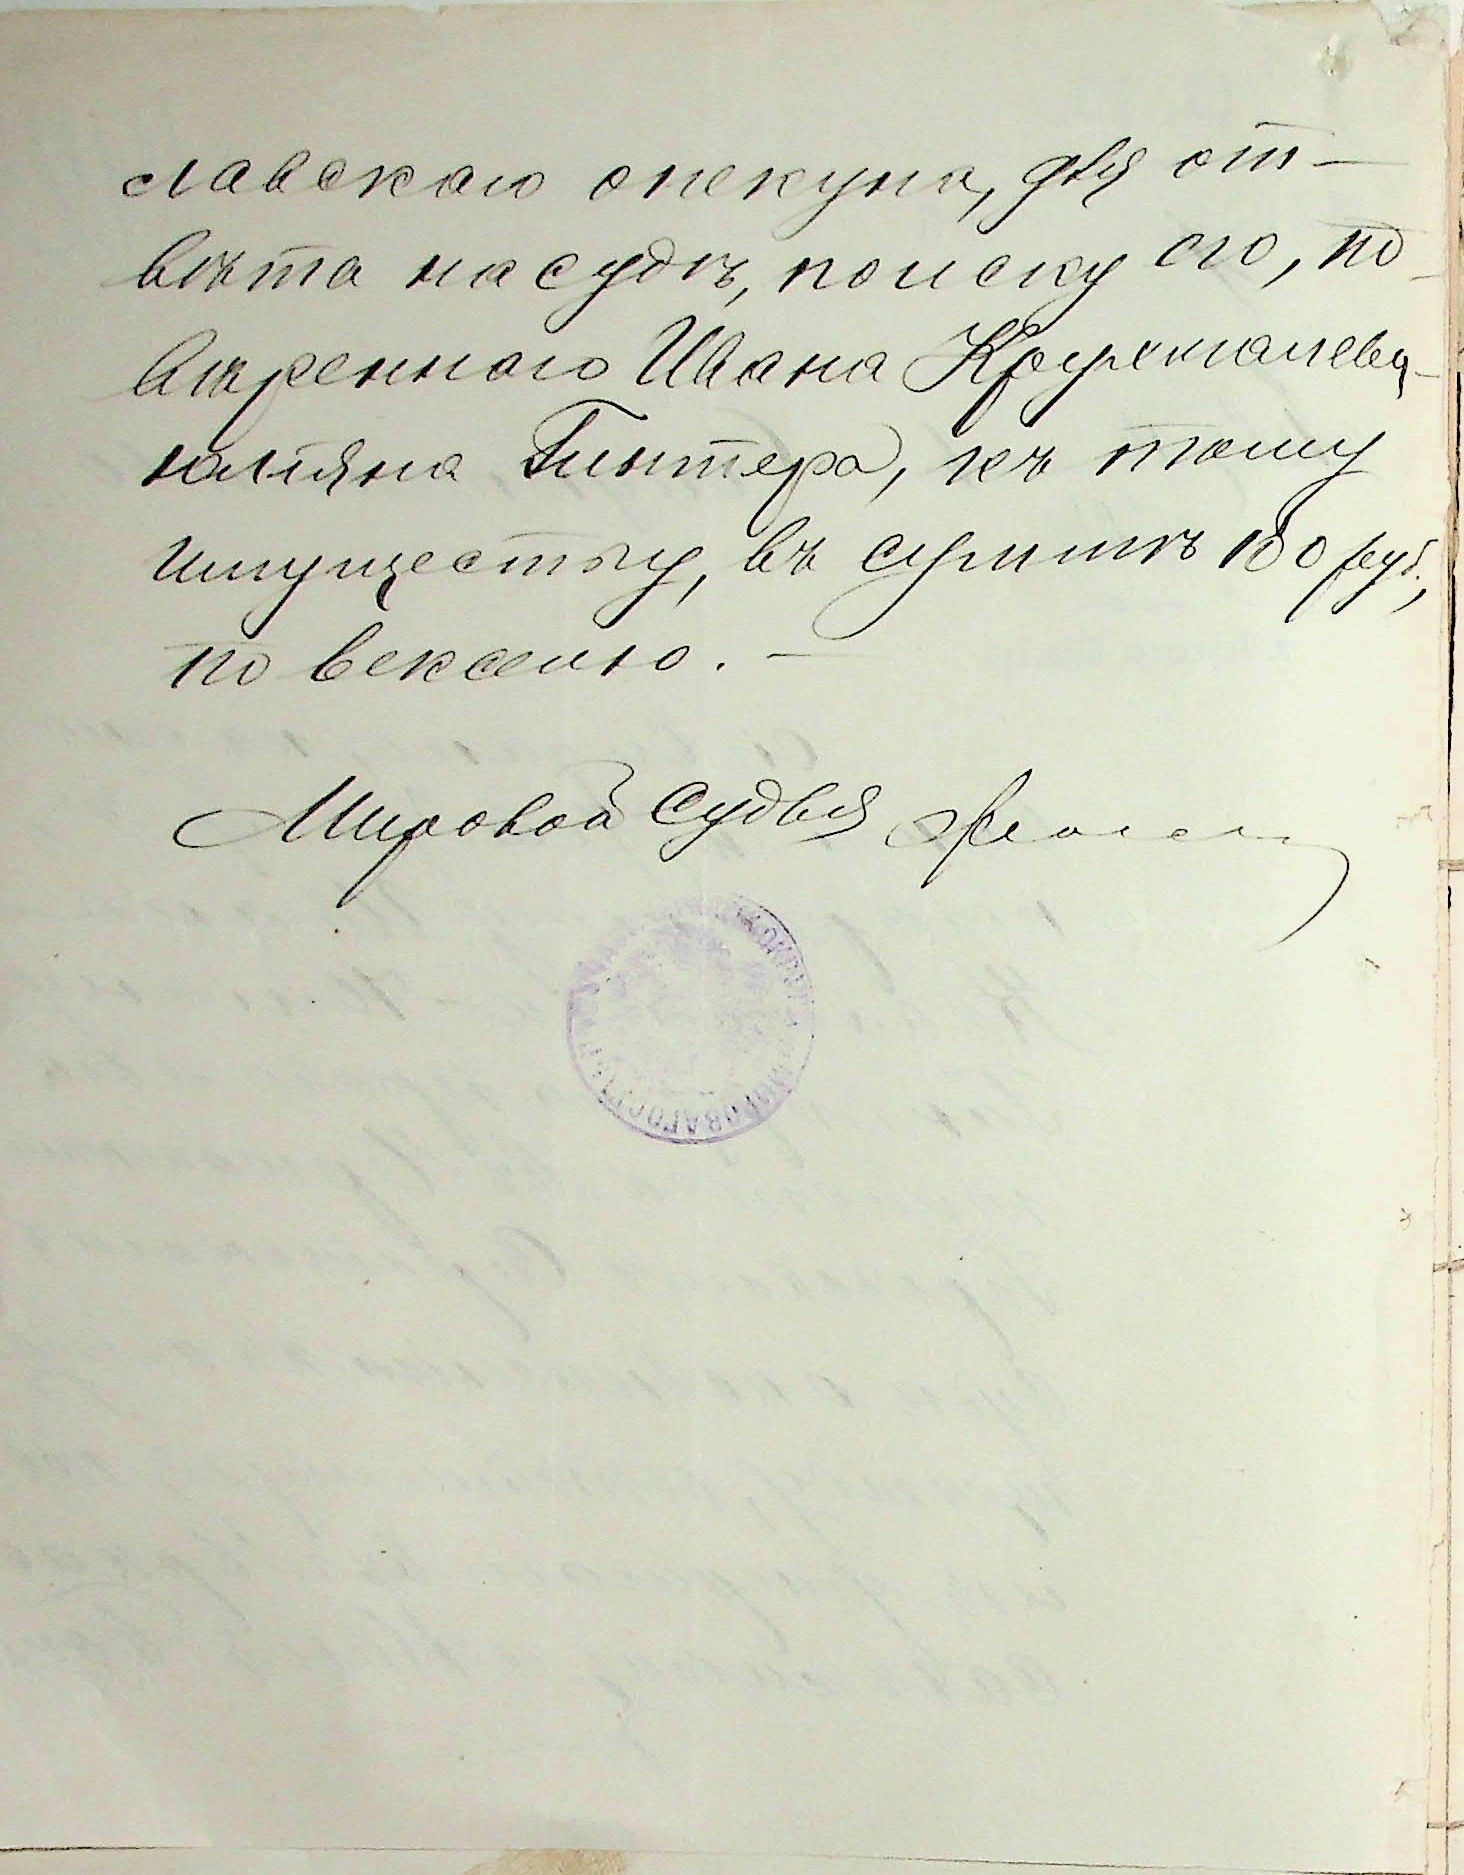 славскаго опекуна, для от-
вѣта на судѣ, по иску его, по-
вѣреннаго Ивана
Гинтера, къ тому
имуществу, въ суммѣ 180 руб.,
по векселю. —
Мировой Судья
МИРОВАГО